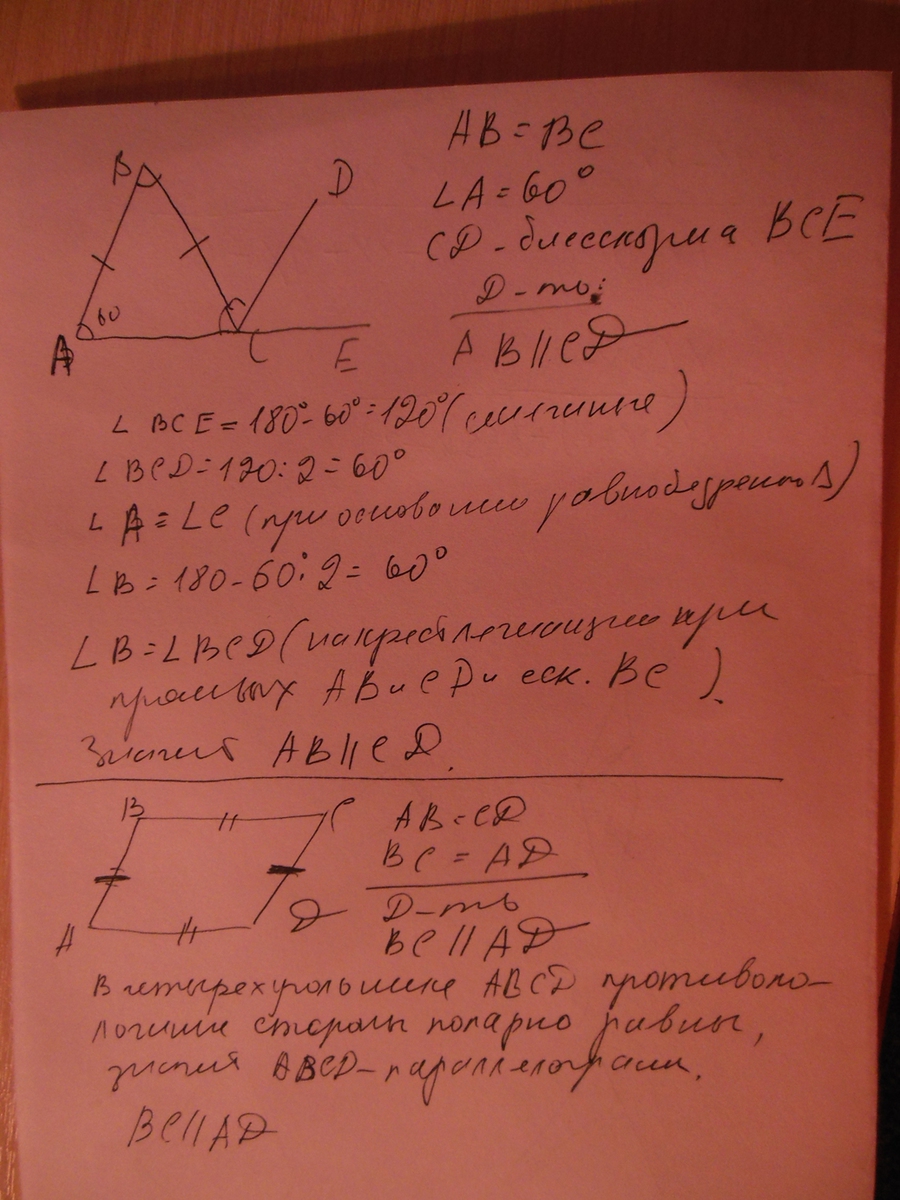 B
D
60
A
C
E
AB = BC
∠A = 60°
CD - биссектриса BCE
D-ть:
AB || CD
∠ BCE = 180° - 60° = 120° (смежные)
∠ BCD = 120 : 2 = 60°
∠ A = ∠C (при основании равнобедренного Δ)
∠B = 180 - 60 : 2 = 60°
∠B = ∠BCD (накрест лежащие при
прямых AB и CD и сек. BC).
Значит AB || CD.
B
C
A
D
AB = CD
BC = AD
D-ть
BC || AD
В четырехугольнике ABCD противопо-
ложные стороны попарно равны,
значит ABCD - параллелограмм.
BC || AD